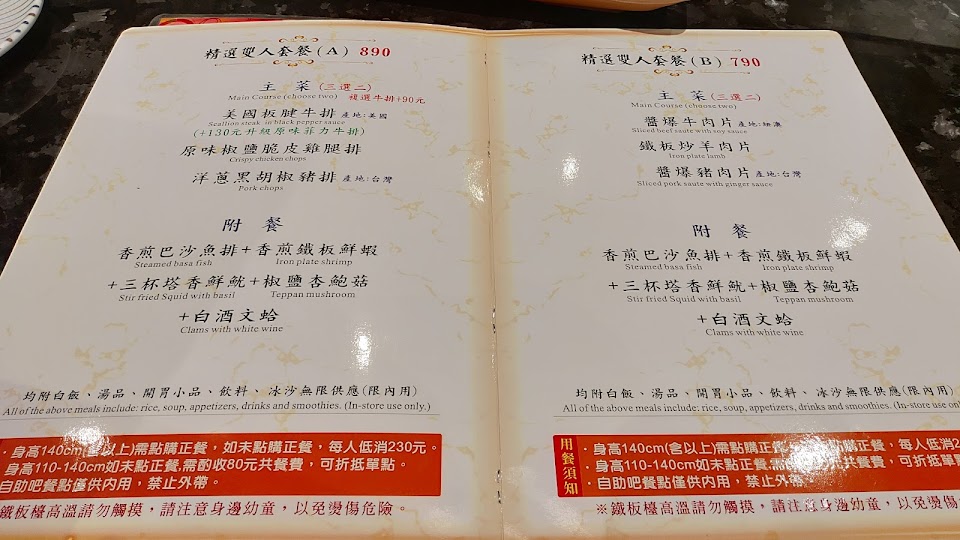 精選雙人套餐(A) 890
主菜(三選二)
Main Course (choose two) 複選牛排+90元
美國板腱牛排 產地:美國
Scallion steak in black pepper sauce
(+130元升級原味菲力牛排)
原味椒鹽脆皮雞腿排
Crispy chicken chops
洋蔥黑胡椒豬排 產地:台灣
Pork chops
附餐
香煎巴沙魚排+香煎鐵板鮮蝦
Steamed basa fish Iron plate shrimp
+三杯塔香鮮魷+椒鹽杏鮑菇
Stir fried Squid with basil Teppan mushroom
+白酒文蛤
Clams with white wine
均附白飯、湯品、開胃小品、飲料、冰沙無限供應(限內用)
All of the above meals include: rice, soup, appetizers, drinks and smoothies. (In-store use only.)
·身高140cm(含以上)需點購正餐，如未點購正餐，每人低消230元。
身高110-140cm如未點正餐,需酌收80元共餐費，可折抵單點。
自助吧餐點僅供內用，禁止外帶。
鐵板檯高溫請勿觸摸，請注意身邊幼童，以免燙傷危險。
精選雙人套餐(B) 790
主菜(三選二)
Main Course (choose two)
醬爆牛肉片 產地:紐澳
Sliced beef saute with soy sauce
鐵板炒羊肉片
Iron plate lamb
醬爆豬肉片 產地:台灣
Sliced pork saute with ginger sauce
附餐
香煎巴沙魚排+香煎鐵板鮮蝦
Steamed basa fish Iron plate shrimp
+三杯塔香鮮魷+椒鹽杏鮑菇
Stir fried Squid with basil Teppan mushroom
+白酒文蛤
Clams with white wine
均附白飯、湯品、開胃小品、飲料、冰沙無限供應(限內用)
All of the above meals include: rice, soup, appetizers, drinks and smoothies. (In-store use on
用餐須知
·身高140cm(含以上)需點購正餐，如未點購正餐，每人低消2
·身高110-140cm如未點正餐,需酌收80元共餐費，可折抵單
·自助吧餐點僅供內用，禁止外帶。
※鐵板檯高溫請勿觸摸，請注意身邊幼童，以免燙傷危